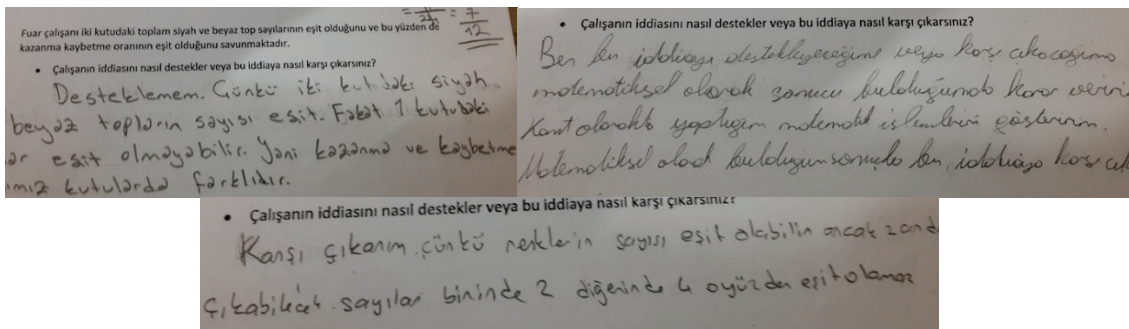 7
12
Fuar çalışanı iki kutudaki toplam siyah ve beyaz top sayılarının eşit olduğunu ve bu yüzden de
kazanma kaybetme oranının eşit olduğunu savunmaktadır.
• Çalışanın iddiasını nasıl destekler veya bu iddiaya nasıl karşı çıkarsınız?
Desteklemem. Çünkü iki kutudaki siyah
beyaz topların sayısı eşit. Fakat 1 kutudaki
eşit olmayabilir. Yani kazanma ve kaybetme
kutularda farklıdır.
• Çalışanın iddiasını nasıl destekler veya bu iddiaya nasıl karşı çıkarsınız?
Ben bu iddiayı destekleyeceğime veya karşı çıkacağıma
matematiksel olarak sonucu bulduğumda karar
Kanıt olarakta yaptığım matematik işlemlerini gösteririm.
Matematiksel olarak bulduğum sonuçla ben iddiaya karşı
• Çalışanın iddiasını nasıl destekler veya bu iddiaya nasıl karşı çıkarsınız?
Karşı çıkarım çünkü renklerin sayısı eşit olabilir ancak
çıkabilecek sayılar birinde 2 diğerinde 4 oyüzden eşit olamaz